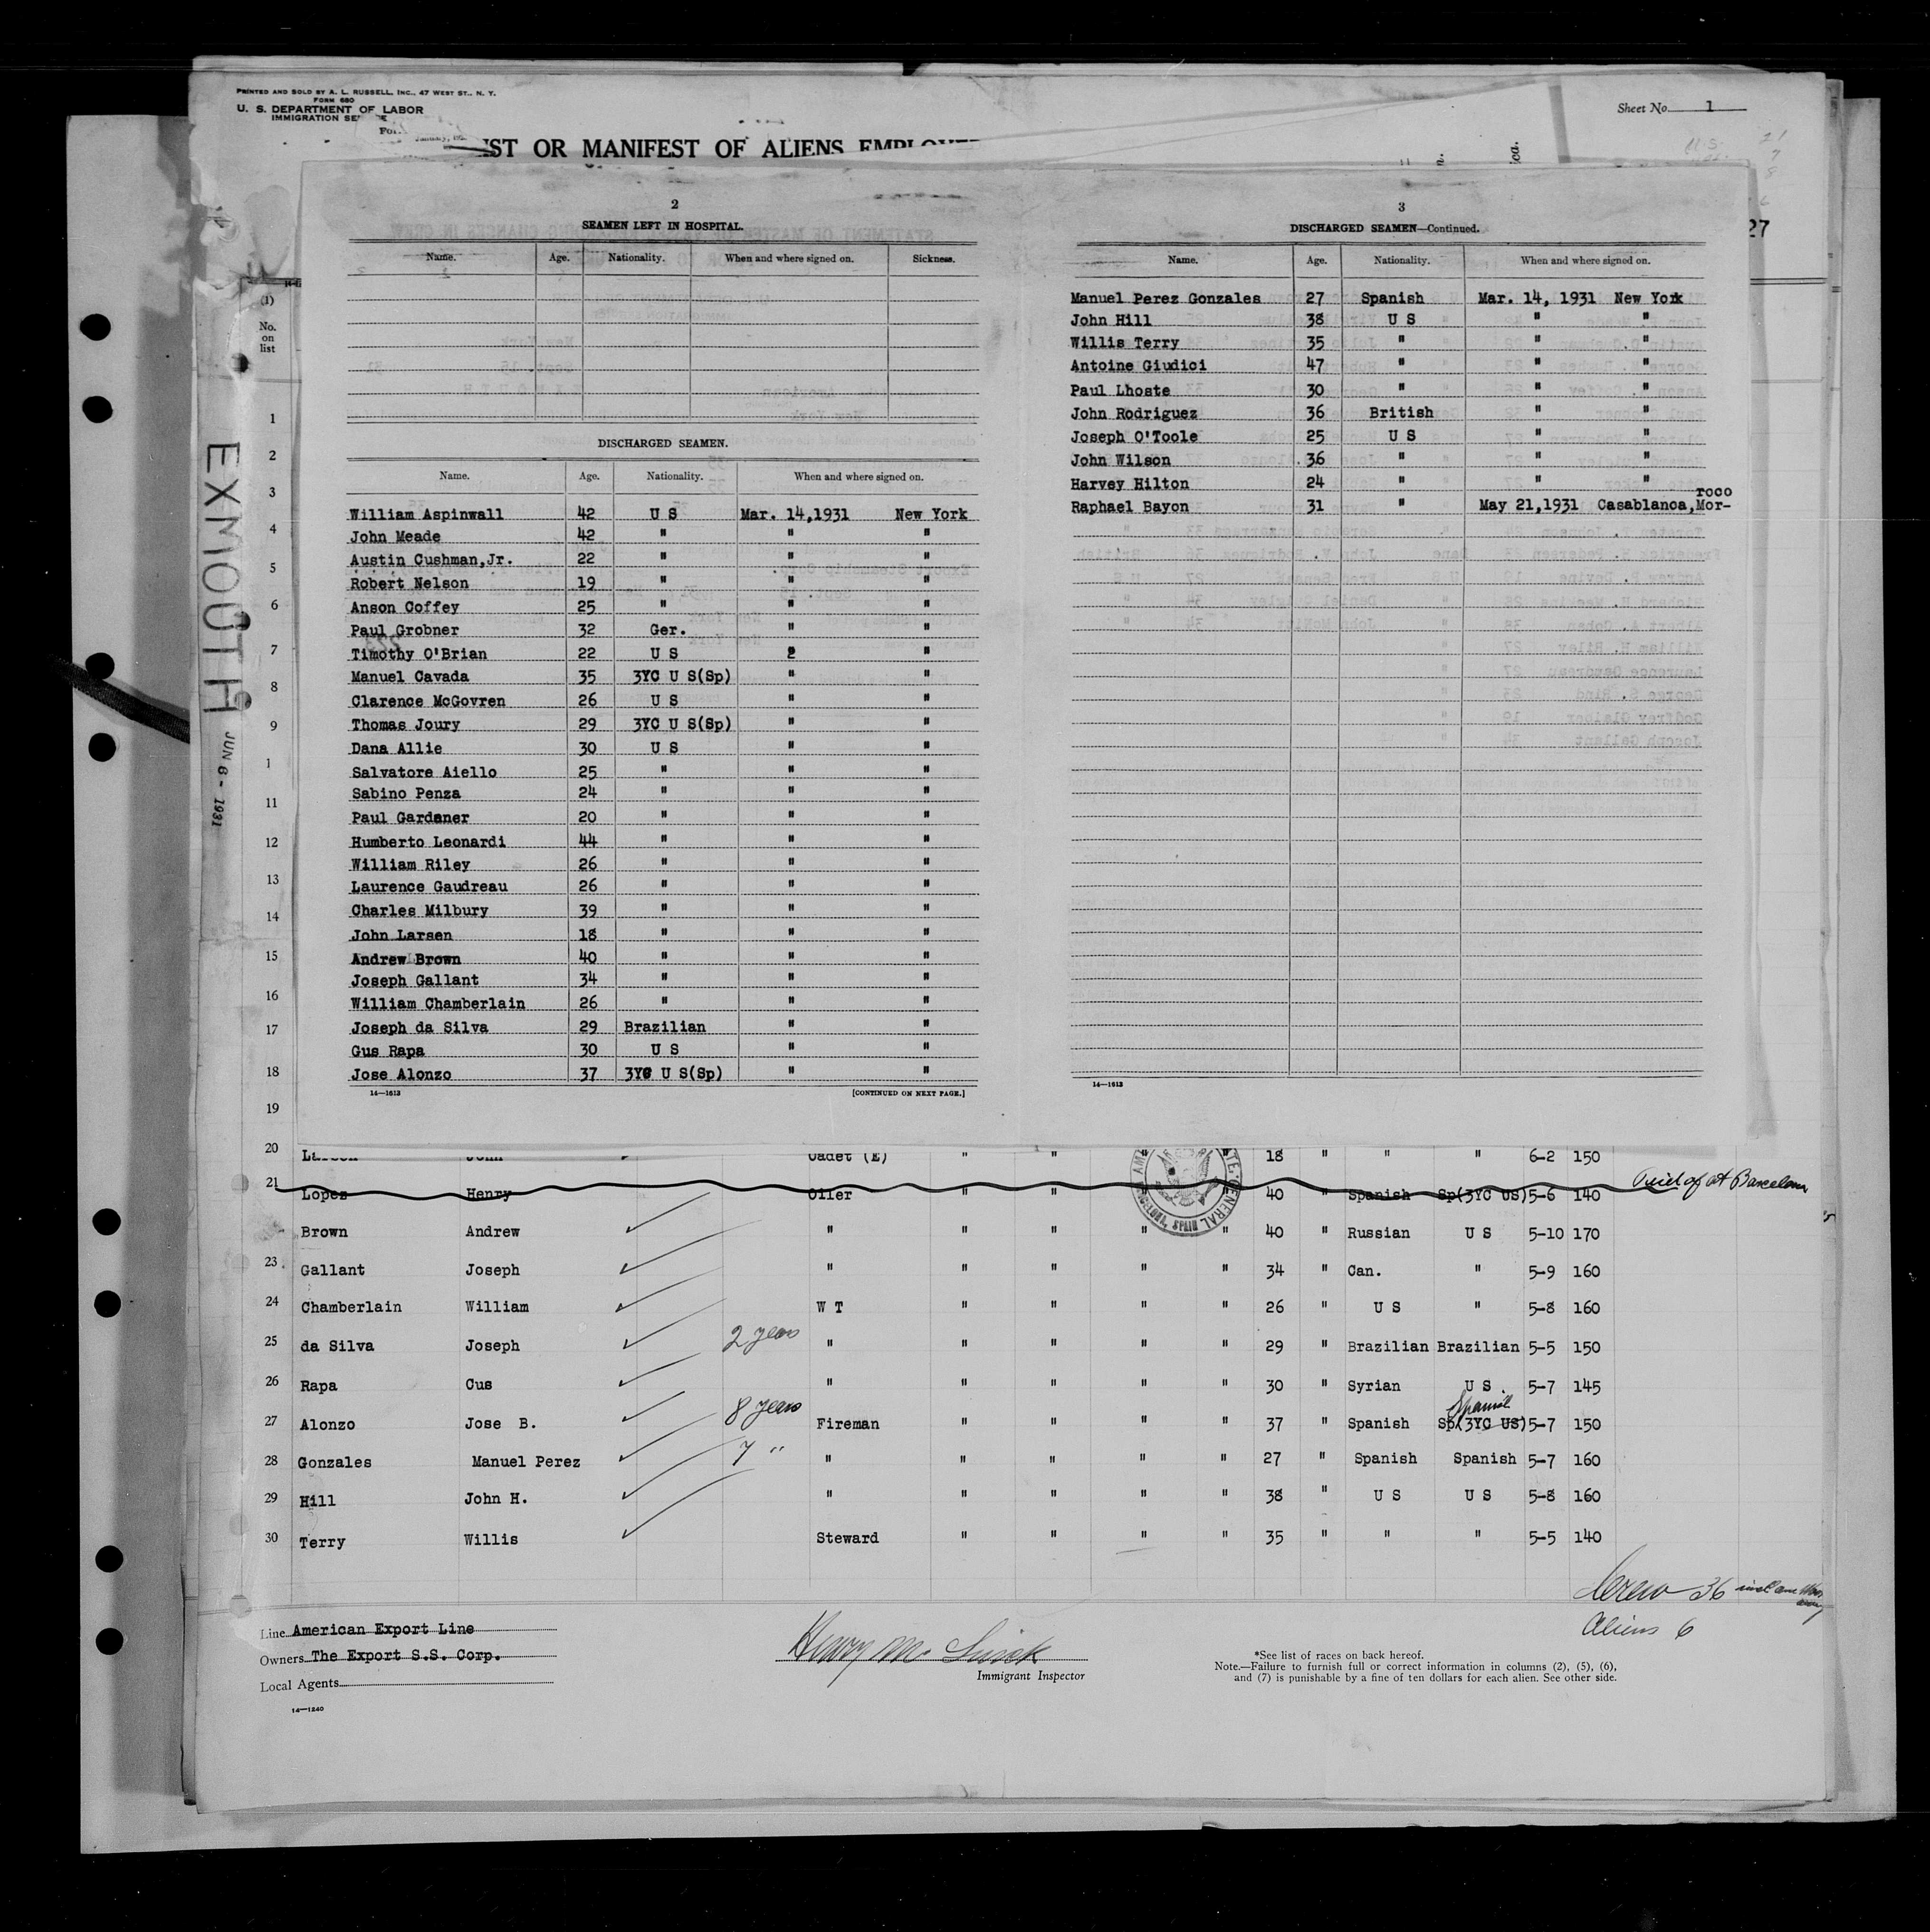 PRINTED AND SOLD BY A. L. RUSSELL, INC., 47 WEST ST., N. Y.
FORM 680
U. S. DEPARTMENT OF LABOR
IMMIGRATION SE
Sheet No. 1
IST OR MANIFEST OF ALIENS EMPLOYE
27
EXMOUTH
JUN 6 - 1931
(1)
No. on list
1
2
3
4
5
6
7
8
9
1
11
12
13
14
15
16
17
18
19
2
SEAMEN LEFT IN HOSPITAL.
Name. Age. Nationality. When and where signed on. Sickness.
DISCHARGED SEAMEN.
Name. Age. Nationality. When and where signed on.
William Aspinwall 42 U S Mar. 14,1931 New York
John Meade 42 " " "
Austin Cushman,Jr. 22 " " "
Robert Nelson 19 " " "
Anson Coffey 25 " " "
Paul Grobner 32 Ger. " "
Timothy O'Brian 22 U S " "
Manuel Cavada 35 3YC U S(Sp) " "
Clarence McGovren 26 U S " "
Thomas Joury 29 3YC U S(Sp) " "
Dana Allie 30 U S " "
Salvatore Aiello 25 " " "
Sabino Penza 24 " " "
Paul Gardaner 20 " " "
Humberto Leonardi 44 " " "
William Riley 26 " " "
Laurence Gaudreau 26 " " "
Charles Milbury 39 " " "
John Larsen 18 " " "
Andrew Brown 40 " " "
Joseph Gallant 34 " " "
William Chamberlain 26 " " "
Joseph da Silva 29 Brazilian " "
Gus Rapa 30 U S " "
Jose Alonzo 37 3YC U S(Sp) " "
14—1613 [CONTINUED ON NEXT PAGE.]
3
DISCHARGED SEAMEN—Continued.
Name. Age. Nationality. When and where signed on.
Manuel Perez Gonzales 27 Spanish Mar. 14, 1931 New York
John Hill 38 U S " "
Willis Terry 35 " " "
Antoine Giudici 47 " " "
Paul Lhoste 30 " " "
John Rodriguez 36 British " "
Joseph O'Toole 25 U S " "
John Wilson 36 " " "
Harvey Hilton 24 " " "
Raphael Bayon 31 " May 21,1931 Casablanca,Mor-
roco
14—1613
20 Larsen John Cadet (E) " " " " 18 " " " 6-2 150
21 Lopez Henry Oiler " " " 40 " Spanish Sp(3YC US) 5-6 140 at Barcelona
Brown Andrew " " " " " 40 " Russian U S 5-10 170
23 Gallant Joseph " " " " " 34 " Can. " 5-9 160
24 Chamberlain William W T " " " " 26 " U S " 5-8 160
25 da Silva Joseph 2 years " " " " " 29 " Brazilian Brazilian 5-5 150
26 Rapa Gus " " " " " 30 " Syrian U S 5-7 145
Spanish
27 Alonzo Jose B. 8 years Fireman " " " " 37 " Spanish Sp(3YC US) 5-7 150
28 Gonzales Manuel Perez 7 " " " " " " 27 " Spanish Spanish 5-7 160
29 Hill John H. " " " " " 38 " U S U S 5-8 160
30 Terry Willis Steward " " " " 35 " " " 5-5 140
Crew 36
Aliens 6
Line American Export Line
Owners The Export S.S. Corp.
Local Agents
14—1240
Immigrant Inspector
*See list of races on back hereof.
Note.—Failure to furnish full or correct information in columns (2), (5), (6),
and (7) is punishable by a fine of ten dollars for each alien. See other side.